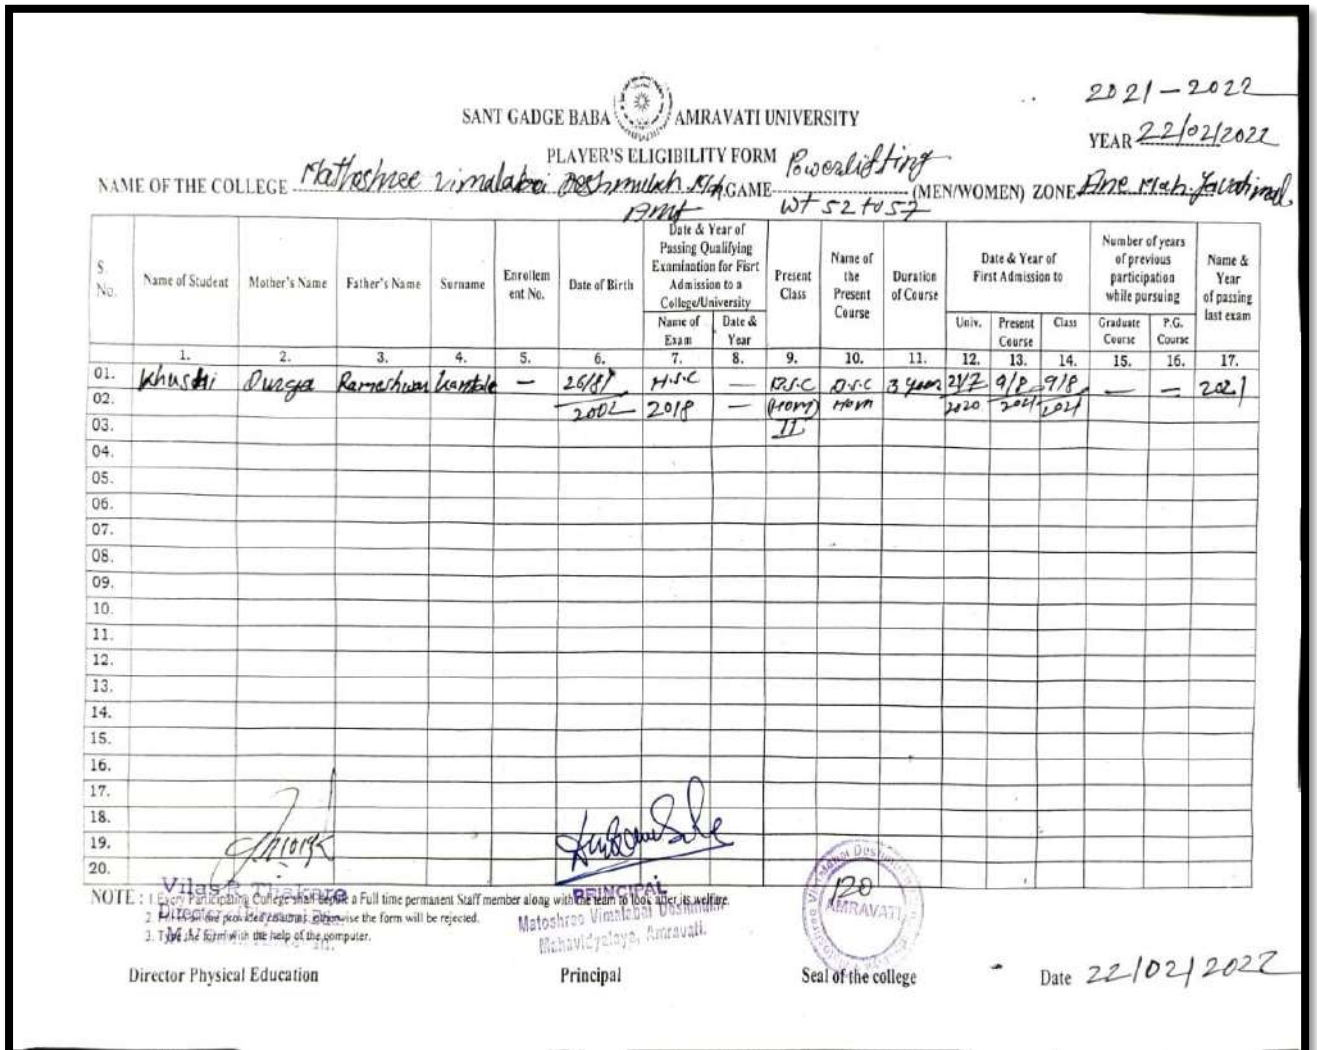 2021-2022
SANT GADGE BABA AMRAVATI UNIVERSITY
YEAR 22/02/2022
PLAYER'S ELIGIBILITY FORM
NAME OF THE COLLEGE Mathoshree Vimalabai Deshmukh Mah. GAME Powerlifting (MEN/WOMEN) ZONE
Amt Wt 52 to 57
S. No. Name of Student Mother's Name Father's Name Surname Enrollem ent No. Date of Birth Date & Year of Passing Qualifying Examination for Fisrt Admission to a College/University Present Class Name of the Present Course Duration of Course Date & Year of First Admission to Number of years of previous participation while pursuing Name & Year of passing last exam
Name of Exam Date & Year Univ. Present Course Class Graduate Course P.G. Course
1. 2. 3. 4. 5. 6. 7. 8. 9. 10. 11. 12. 13. 14. 15. 16. 17.
01. Khushi Durga Rameshwar Kamble — 26/8/ H.S.C — B.S.C B.S.C 3 year 21/7 9/8 9/8 — — 2021
02. 2002 2018 — (Hom) Hom 2020 2021 2021
03. II
04.
05.
06.
07.
08.
09.
10.
11.
12.
13.
14.
15.
16.
17.
18.
19.
20.
NOTE : 1. Every Participating College shall depute a Full time permanent Staff member along with the team to look after its welfare.
2. Fill in all the provided columns otherwise the form will be rejected.
3. Type the form with the help of the computer.
Vilas R. Thakare
Director
PRINCIPAL
Matoshree Vimalabai Deshmukh
Mahavidyalaya, Amravati.
120
AMRAVATI
Director Physical Education Principal Seal of the college Date 22/02/2022